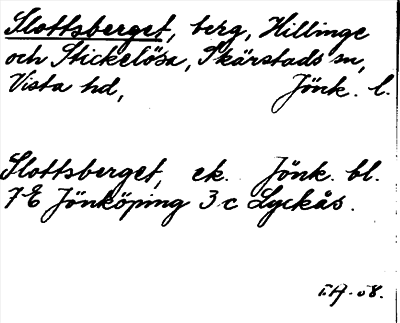 Slottsberget, berg, Hillinge
och Stickelösa, Skärstads sn,
Vista hd, Jönk. l.
Slottsberget, ek. Jönk. bl.
7 E Jönköping 3 c Lyckås.
I.A. 58.